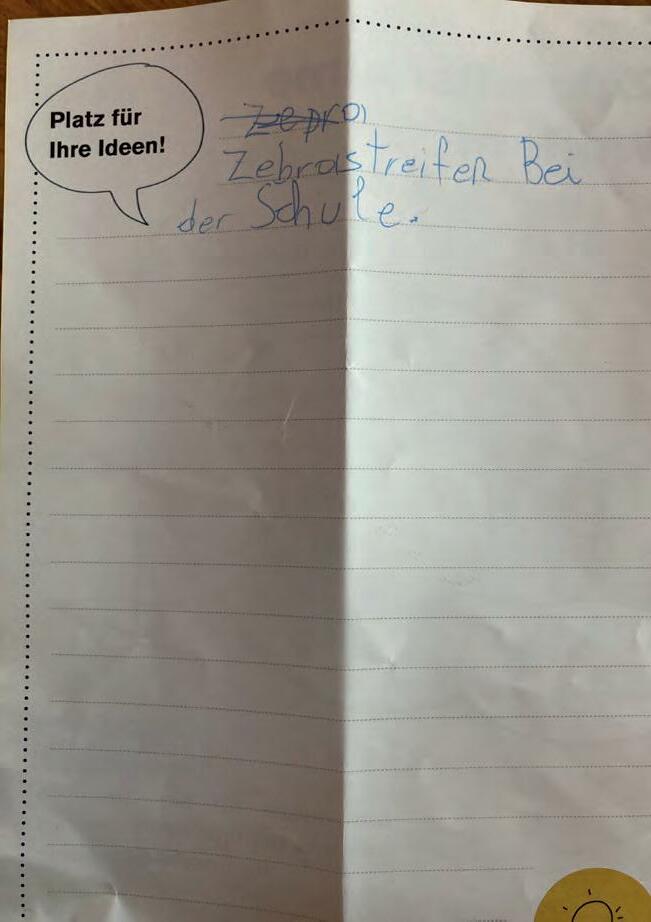 Platz für
Ihre Ideen!
Zepra
Zebrastreifen Bei
der Schule.